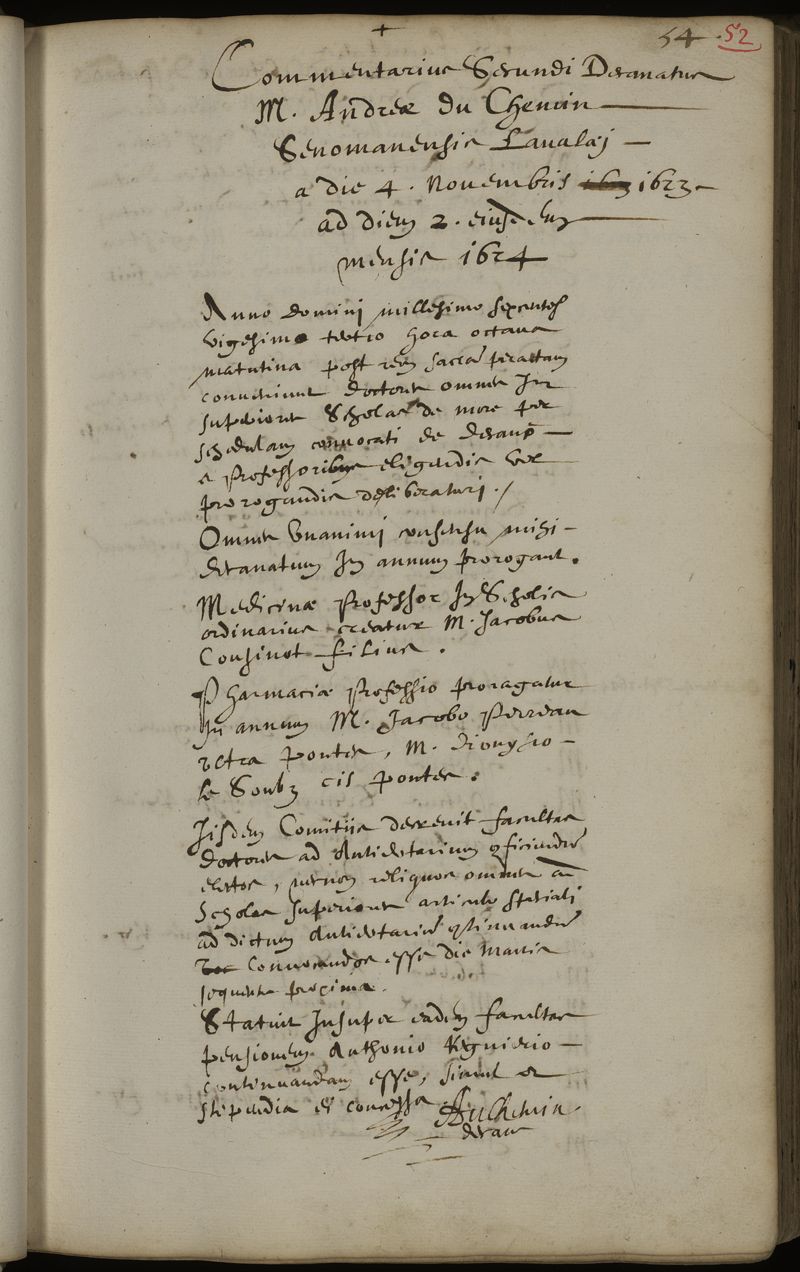 54 52
Commentarius Secundi Decanatus
M. Andreæ du Chemin
Senomanensis Lavalæj
a die 4. Novembris 1623
ad diem 2. eiusdem
mensis 1624
Anno domini millesimo sexcentes
vigesimo tertio hora octava
matutina post rem sacrā peractam
convenerunt doctores omnes In
superiores Scholas de more per
schedulam convocati de decano
e Professoribus eligendis vel
prorogandis deliberaturi ./
Omnes Unanimi consensu mihi
decanatum In annum prorogant.
Medicinæ Professor In Scholis
ordinarius creatur M. Jacobus
Cousinot filius.
Pharmaciæ Professio proragatur
In annum M. Jacobo Perreau
vltra pontes, M. Dionysio
le Soubz cis pontes.
Iisdem Comitiis decrevit facultas
doctores ad Antidotarium cficiendū
electos, necnon reliquos omnes ad
Scholas superiores articulo speciali
ad dictum Antidotariū ctinuandū
convocandos esse die Martis
sequente proxima.
Statuit Insuper eadem facultas
pensionem Anthonio Regnierio
continuandam esse, sicut et
stipendia ei concessa. Du Chemin
decanus